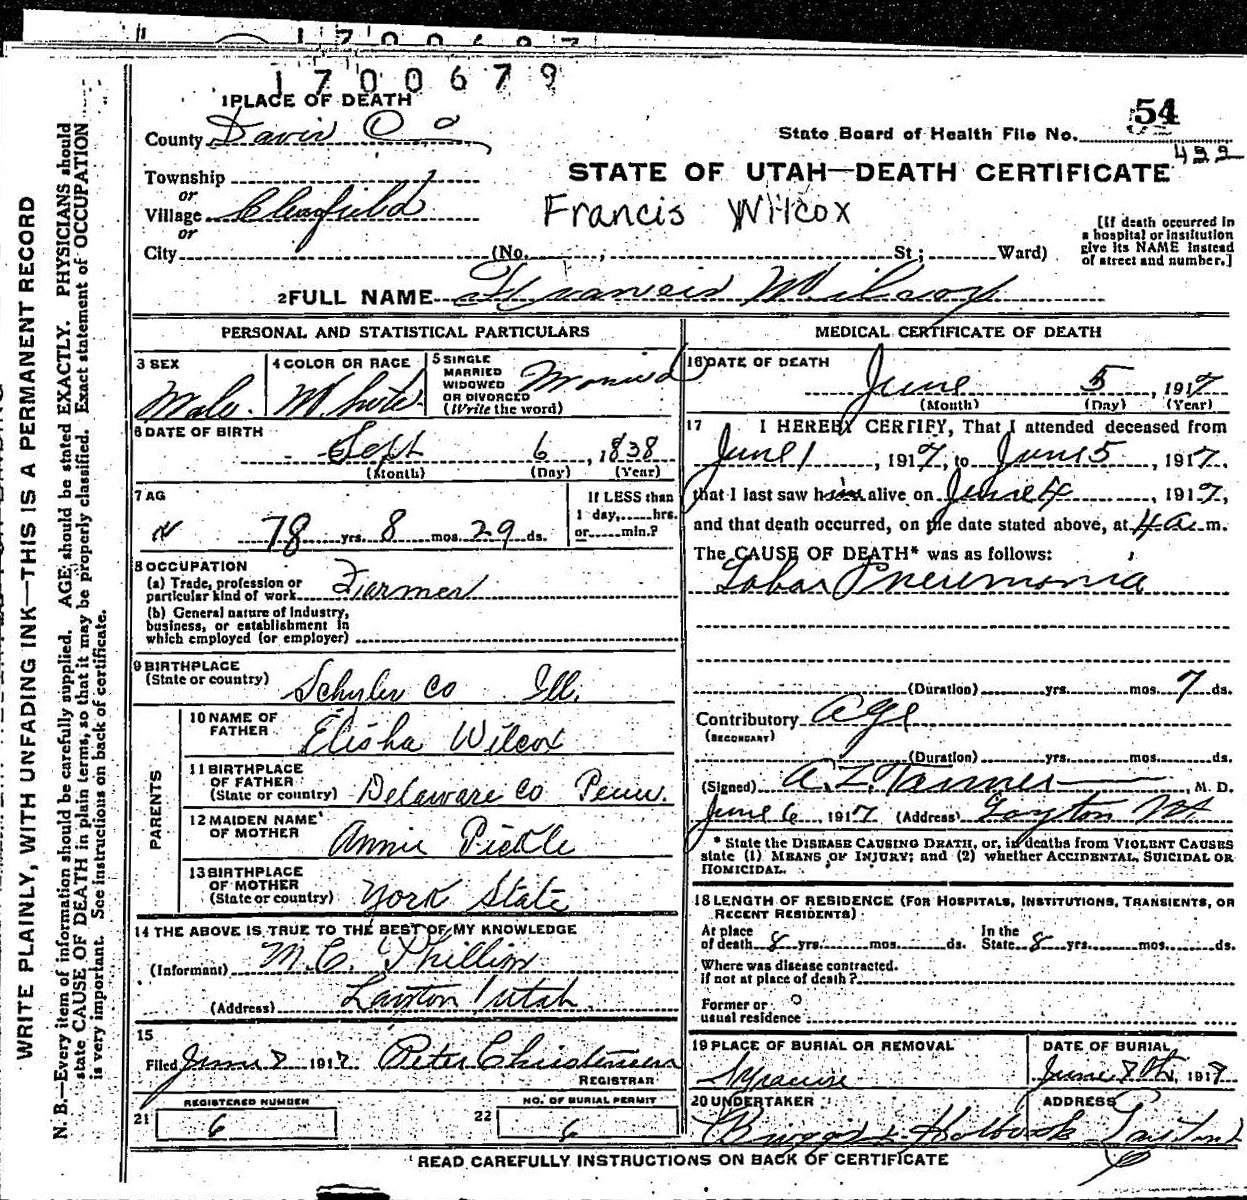 1700679
1 PLACE OF DEATH
County Davis Co
State Board of Health File No. 54
499
STATE OF UTAH—DEATH CERTIFICATE
Township
or
Village Clearfield
or
Francis Wilcox
City (No. ; St; Ward)
[If death occurred in
a hospital or institution
give its NAME instead
of street and number.]
2 FULL NAME Francis Wilcox
PERSONAL AND STATISTICAL PARTICULARS
3 SEX
Male
4 COLOR OR RACE
White
5 SINGLE
MARRIED
WIDOWED
OR DIVORCED
(Write the word)
Married
6 DATE OF BIRTH
Sept 6, 1838
(Month) (Day) (Year)
7 AG
78 yrs. 8 mos. 29 ds.
If LESS than
1 day,......hrs.
or......min.?
8 OCCUPATION
(a) Trade, profession or
particular kind of work Farmer
(b) General nature of Industry,
business, or establishment in
which employed (or employer)
9 BIRTHPLACE
(State or country) Schuler Co Ill.
PARENTS
10 NAME OF
FATHER Elisha Wilcox
11 BIRTHPLACE
OF FATHER
(State or country) Delaware Co Penn.
12 MAIDEN NAME
OF MOTHER Annie Pickle
13 BIRTHPLACE
OF MOTHER
(State or country) York State
14 THE ABOVE IS TRUE TO THE BEST OF MY KNOWLEDGE
(Informant) M.C. Phillips
(Address) Layton Utah
15
Filed June 7 1917 Peter Christensen
REGISTRAR
21 REGISTERED NUMBER
6
22 NO. OF BURIAL PERMIT
6
MEDICAL CERTIFICATE OF DEATH
16 DATE OF DEATH
June 5, 1917
(Month) (Day) (Year)
17 I HEREBY CERTIFY, That I attended deceased from
June 1, 1917, to June 5, 1917,
that I last saw him alive on June 4, 1917,
and that death occurred, on the date stated above, at 4 a. m.
The CAUSE OF DEATH* was as follows:
Lobar Pneumonia
(Duration) yrs. mos. 7 ds.
Contributory Age
(SECONDARY)
(Duration) yrs. mos. ds.
(Signed) A.Z. Tanner, M. D.
June 6, 1917 (Address) Layton Ut.
* State the DISEASE CAUSING DEATH, or, in deaths from VIOLENT CAUSES
state (1) MEANS OF INJURY; and (2) whether ACCIDENTAL, SUICIDAL OR
HOMICIDAL.
18 LENGTH OF RESIDENCE (FOR HOSPITALS, INSTITUTIONS, TRANSIENTS, OR
RECENT RESIDENTS)
At place
of death 8 yrs. mos. ds.
In the
State 8 yrs. mos. ds.
Where was disease contracted.
if not at place of death?
Former or
usual residence
19 PLACE OF BURIAL OR REMOVAL
Syracuse
DATE OF BURIAL
June 7th, 1917
20 UNDERTAKER
Briggs & Holbrook
ADDRESS
Layton
READ CAREFULLY INSTRUCTIONS ON BACK OF CERTIFICATE
WRITE PLAINLY, WITH UNFADING INK—THIS IS A PERMANENT RECORD
N. B.—Every item of information should be carefully supplied. AGE should be stated EXACTLY. PHYSICIANS should
state CAUSE OF DEATH in plain terms, so that it may be properly classified. Exact statement of OCCUPATION
is very important. See instructions on back of certificate.